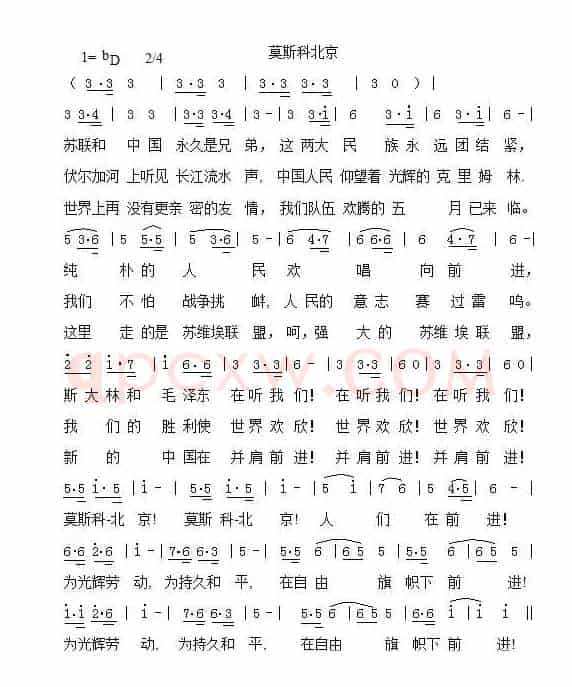 莫斯科北京
1= bD 2/4
( 3·3 3 | 3·3 3 | 3·3 3·3 | 3 0 ) |
3 3·4 | 3 3 | 3·3 3·4 | 3 - | 3 3·i | 6 3·i | 6 3·i | 6 - |
苏联和 中国 永久是兄 弟，这 两大 民 族永 远团结 紧，
伏尔加河 上听见 长江流水 声，中国人民 仰望着 光辉的 克里姆 林.
世界上再 没有更亲 密的友 情，我们队伍 欢腾的 五 月已来 临。
5 3·6 | 5 5·5 | 5 3·6 | 5 - | 6 4·7 | 6 6·6 | 6 4·7 | 6 - |
纯 朴的 人 民 欢 唱 向 前 进，
我们 不怕 战争挑 衅，人民的 意志 赛过雷 鸣。
这里 走的是 苏维埃联 盟，呵，强 大的 苏维埃联 盟，
2 2 | i·7 | i 6·6 | 3 3·3 | 6 - | 3 3·3 | 6 0 | 3 3·3 | 6 0 |
斯大林和 毛泽东 在听我们！ 在听我们！ 在听我们！
我们 的胜利使 世界欢欣！ 世界欢欣！ 世界欢欣！
新的 中国在 并肩前进！ 并肩前进！ 并肩前进！
5·5 i·5 | i - | 5·5 i·5 | i - | 5 i | 7 6 | 5 4·5 | 3 - |
莫斯科-北 京！ 莫斯科-北 京！ 人 们 在前 进！
6·6 2·6 | i - | 7·6 6·3 | 5 - | 5·5 6 | 6 5 5 | 5·5 6 | 6 5 5 |
为光辉劳 动，为持久和 平，在自由 旗 帜下前 进！
i·i 2·6 | i - | 7·6 6·3 | 5 - | 5·5 6 | 6 5 5 | 6·6 i | i i ||
为光辉劳 动，为持久和 平. 在自由 旗 帜下前 进！